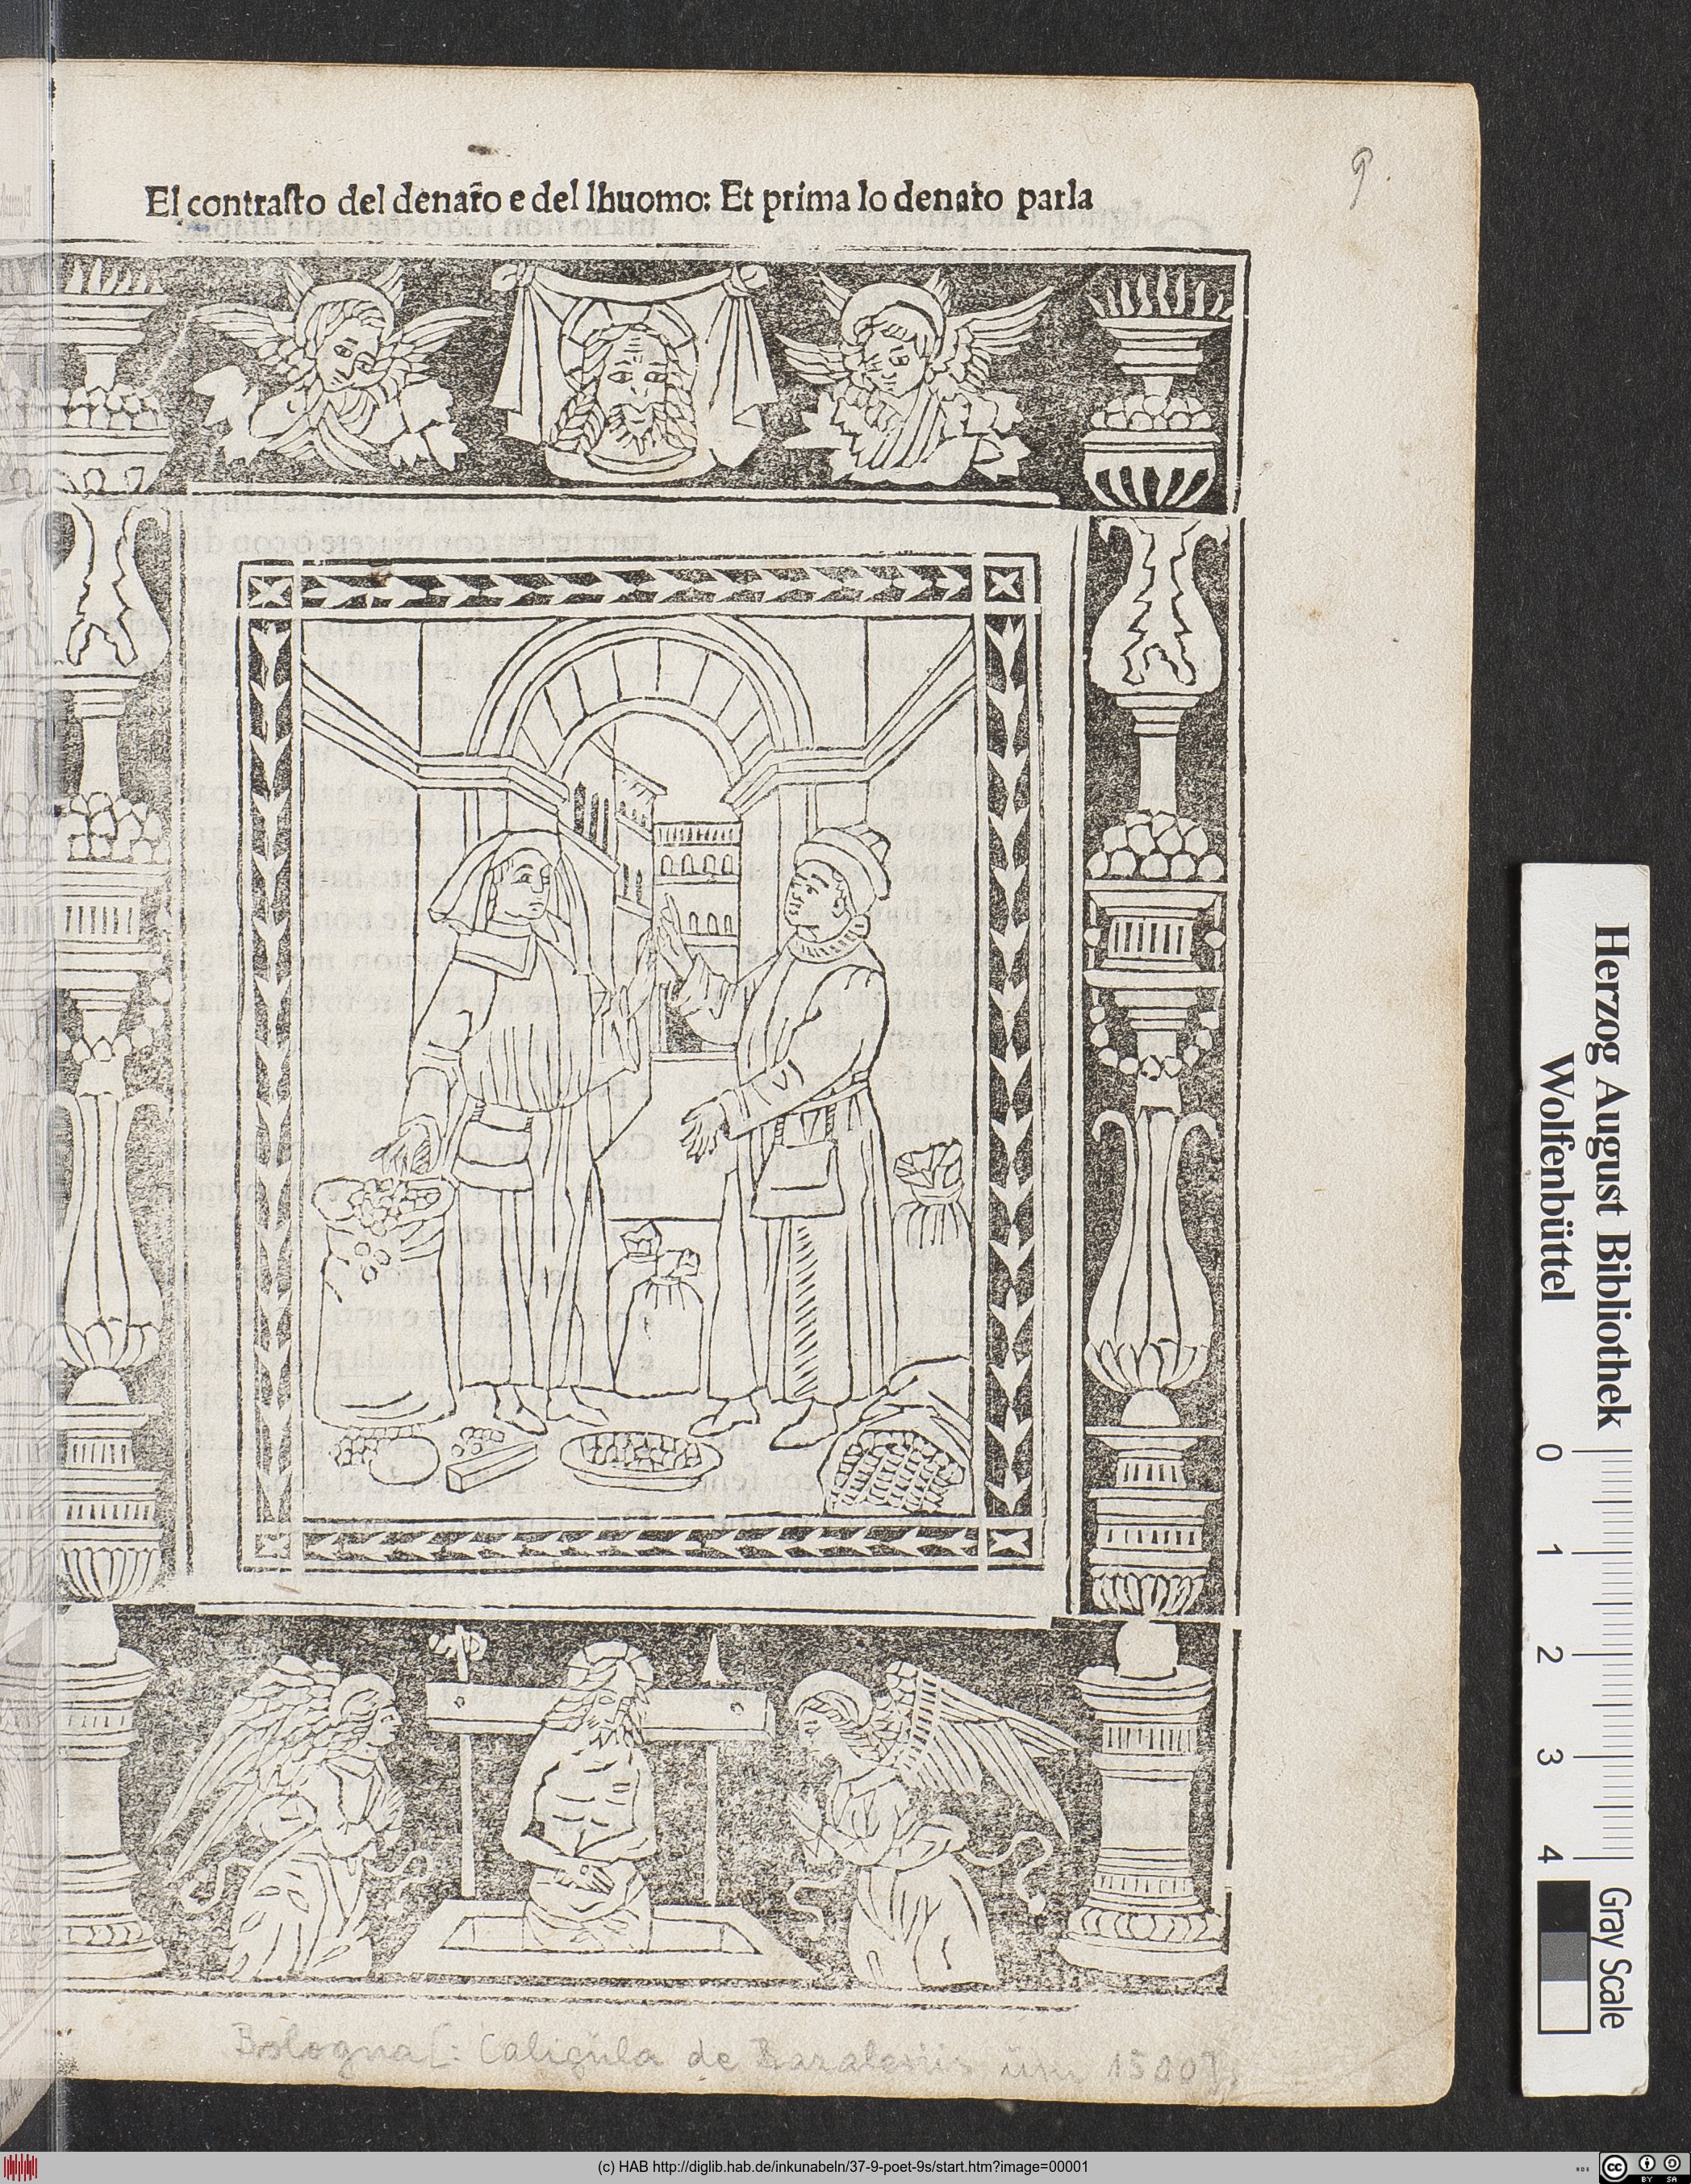 9.
El contraſto del denar̃o e del lhuomo: Et prima lo denaro parla
Bologna [: Caligula de
1500].
Herzog August Bibliothek
Wolfenbüttel
0 1 2 3 4
Gray Scale
(c) HAB http://diglib.hab.de/inkunabeln/37-9-poet-9s/start.htm?image=00001
cc BY SA